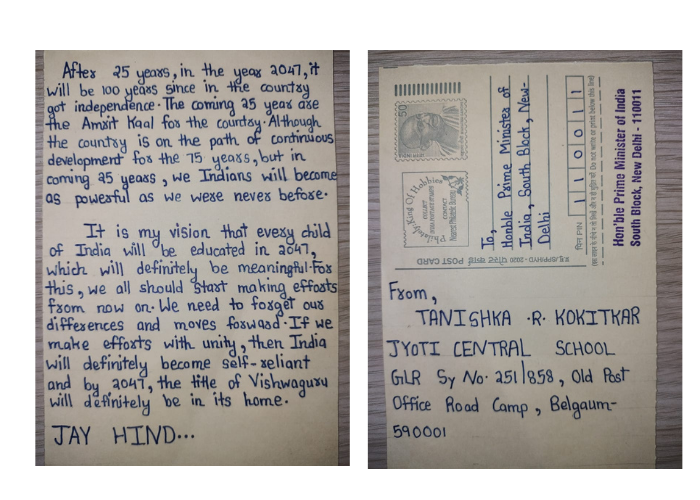 After 25 years, in the year 2047, it
will be 100 years since in the country
got independence. The coming 25 year are
the Amrit Kaal for the country. Although
the country is on the path of continuous
development for the 75 years, but in
coming 25 years, we Indians will become
as powerful as we were never before.
It is my vision that every child
of India will be educated in 2047,
which will definitely be meaningful. For
this, we all should start making efforts
from now on. We need to forget our
differences and moves forward. If we
make efforts with unity, then India
will definitely become self-reliant
and by 2047, the title of Vishwaguru
will definitely be in its home.
JAY HIND...
To,
Honble Prime Minister of
India, South Block, New-
Delhi
पिन PIN 110011
Hon'ble Prime Minister of India
South Block, New Delhi - 110011
पोस्ट कार्ड POST CARD
Philately King Of Hobbies
50
From,
TANISHKA .R. KOKITKAR
JYOTI CENTRAL SCHOOL
GLR Sy No. 251/858, Old Post
Office Road Camp, Belgaum-
590001